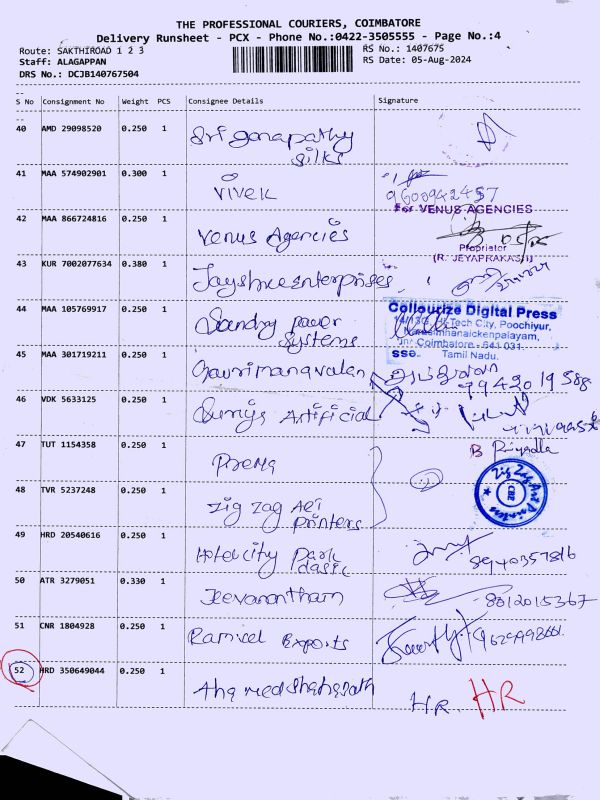 THE PROFESSIONAL COURIERS, COIMBATORE
Delivery Runsheet - PCX - Phone No.:0422-3505555 - Page No.:4
Route: SAKTHIROAD 1 2 3
RS No.: 1407675
Staff: ALAGAPPAN
RS Date: 05-Aug-2024
DRS No.: DCJB140767504
S No Consignment No Weight PCS Consignee Details Signature
40 AMD 29098520 0.250 1 Sri ganapathy
silks
41 MAA 574902901 0.300 1 Vivek
9600942457
42 MAA 866724816 0.250 1 Venus Agencies
For VENUS AGENCIES
Proprietor
(R. JEYAPRAKASH)
43 KUR 7002077634 0.380 1 Jayshree Enterprises
44 MAA 105769917 0.250 1 Sandry power
Systems
Collourize Digital Press
Hi-Tech City, Poochiyur,
Narasimhanaickenpalayam,
Coimbatore - 641 031
Tamil Nadu.
45 MAA 301719211 0.250 1 Gaurimanavalan
9942019588
46 VDK 5633125 0.250 1 Artificial
47 TUT 1154358 0.250 1 Prema
B Priyadla
48 TVR 5237248 0.250 1 Zig Zag Art
Printers
Zig Zag Art Printers
CBE
49 HRD 20540616 0.250 1 Hotel city Park
8940357816
50 ATR 3279051 0.330 1 Jeevanantham
8012015367
51 CNR 1804928 0.250 1 Ramvel Exports
52 HRD 350649044 0.250 1 Ahamedshaharath
H.R. HR